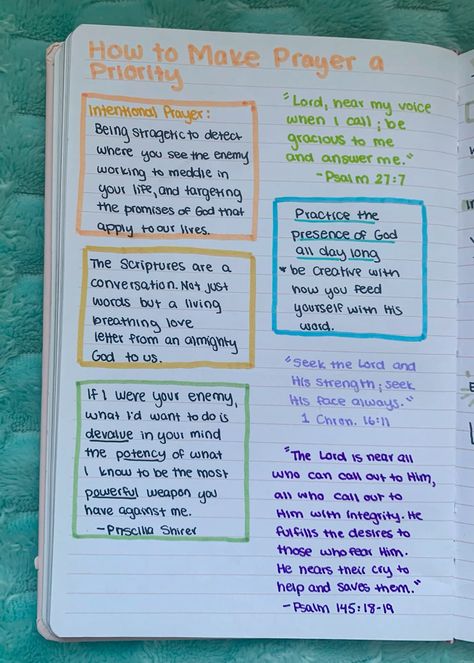 How to Make Prayer a
Priority
Intentional Prayer:
Being stragetic to detect
where you see the enemy
working to meddle in
your life, and targeting
the promises of God that
apply to our lives.
The Scriptures are a
conversation. Not just
words but a living
breathing love
letter from an almighty
God to us.
If I were your enemy,
what I'd want to do is
devalue in your mind
the potency of what
I know to be the most
powerful weapon you
have against me.
-Priscilla Shirer
"Lord, hear my voice
when I call; be
gracious to me
and answer me."
-Psalm 27:7
Practice the
presence of God
all day long
*be creative with
how you feed
yourself with His
word.
"Seek the Lord and
His strength; seek
His face always."
1 Chron. 16:11
"The Lord is near all
who can call out to Him,
all who call out to
Him with integrity. He
fulfills the desires to
those who fear Him.
He hears their cry to
help and saves them."
-Psalm 145:18-19